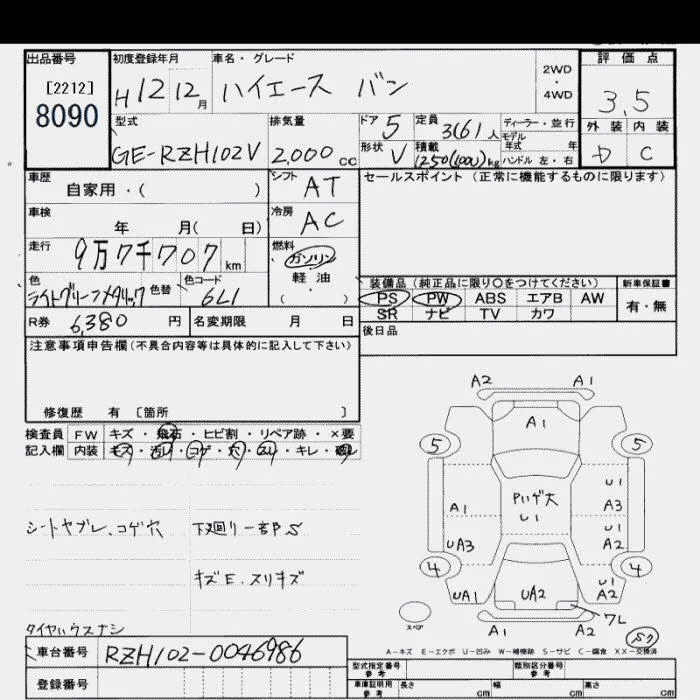 出品番号 初度登録年月 車名・グレード 評価点
[2212] H12 12月 ハイエース バン 2WD・4WD 3.5
8090
型式 排気量 ドア 5 定員 3(6)人 ディーラー・並行 外装 内装
モデル年式 年
GE-RZH102V 2,000cc 形状 V 積載 1250(1000)kg ハンドル 左・右 D C
車歴 シフト AT セールスポイント(正常に機能するものに限ります)
自家用・( )
車検 冷房 AC
年 月( 日)
走行 燃料
9万7千707km ガソリン
軽油
・
( )
色 色替 色コード 装備品(純正品に限り○をつけてください) 新車保証書
ライトグリーンメタリック 6L1 PS PW ABS エアB AW 有・無
SR ナビ TV カワ
R券 6,380円 名変期限 月 日 後日品
注意事項申告欄(不具合内容等は具体的に記入して下さい)
修復歴 有 [箇所 ]
検査員 FW キズ・飛石・ヒビ割・リペア跡・×要
記入欄 内装 キズ・汚レ・コゲ・穴・スレ・キレ・破レ
シートヤブレ、コゲ穴 下廻リ一部S
キズE、スリキズ
タイヤハウスナシ
A2 A1
A1
5 5
U1
A1 A3
U1
U1
UA3 A2
4 4
UA1 UA2 U1
A2
ワレ
スペア A1 A2
A-キズ E-エクボ U-凹み W-補修跡 S-サビ C-腐食 XX-交換済
車台番号 RZH102-0046986
登録番号
型式指定番号 参考 類別区分番号 参考
車庫証明用 参考 長さ cm 幅 cm 高さ cm